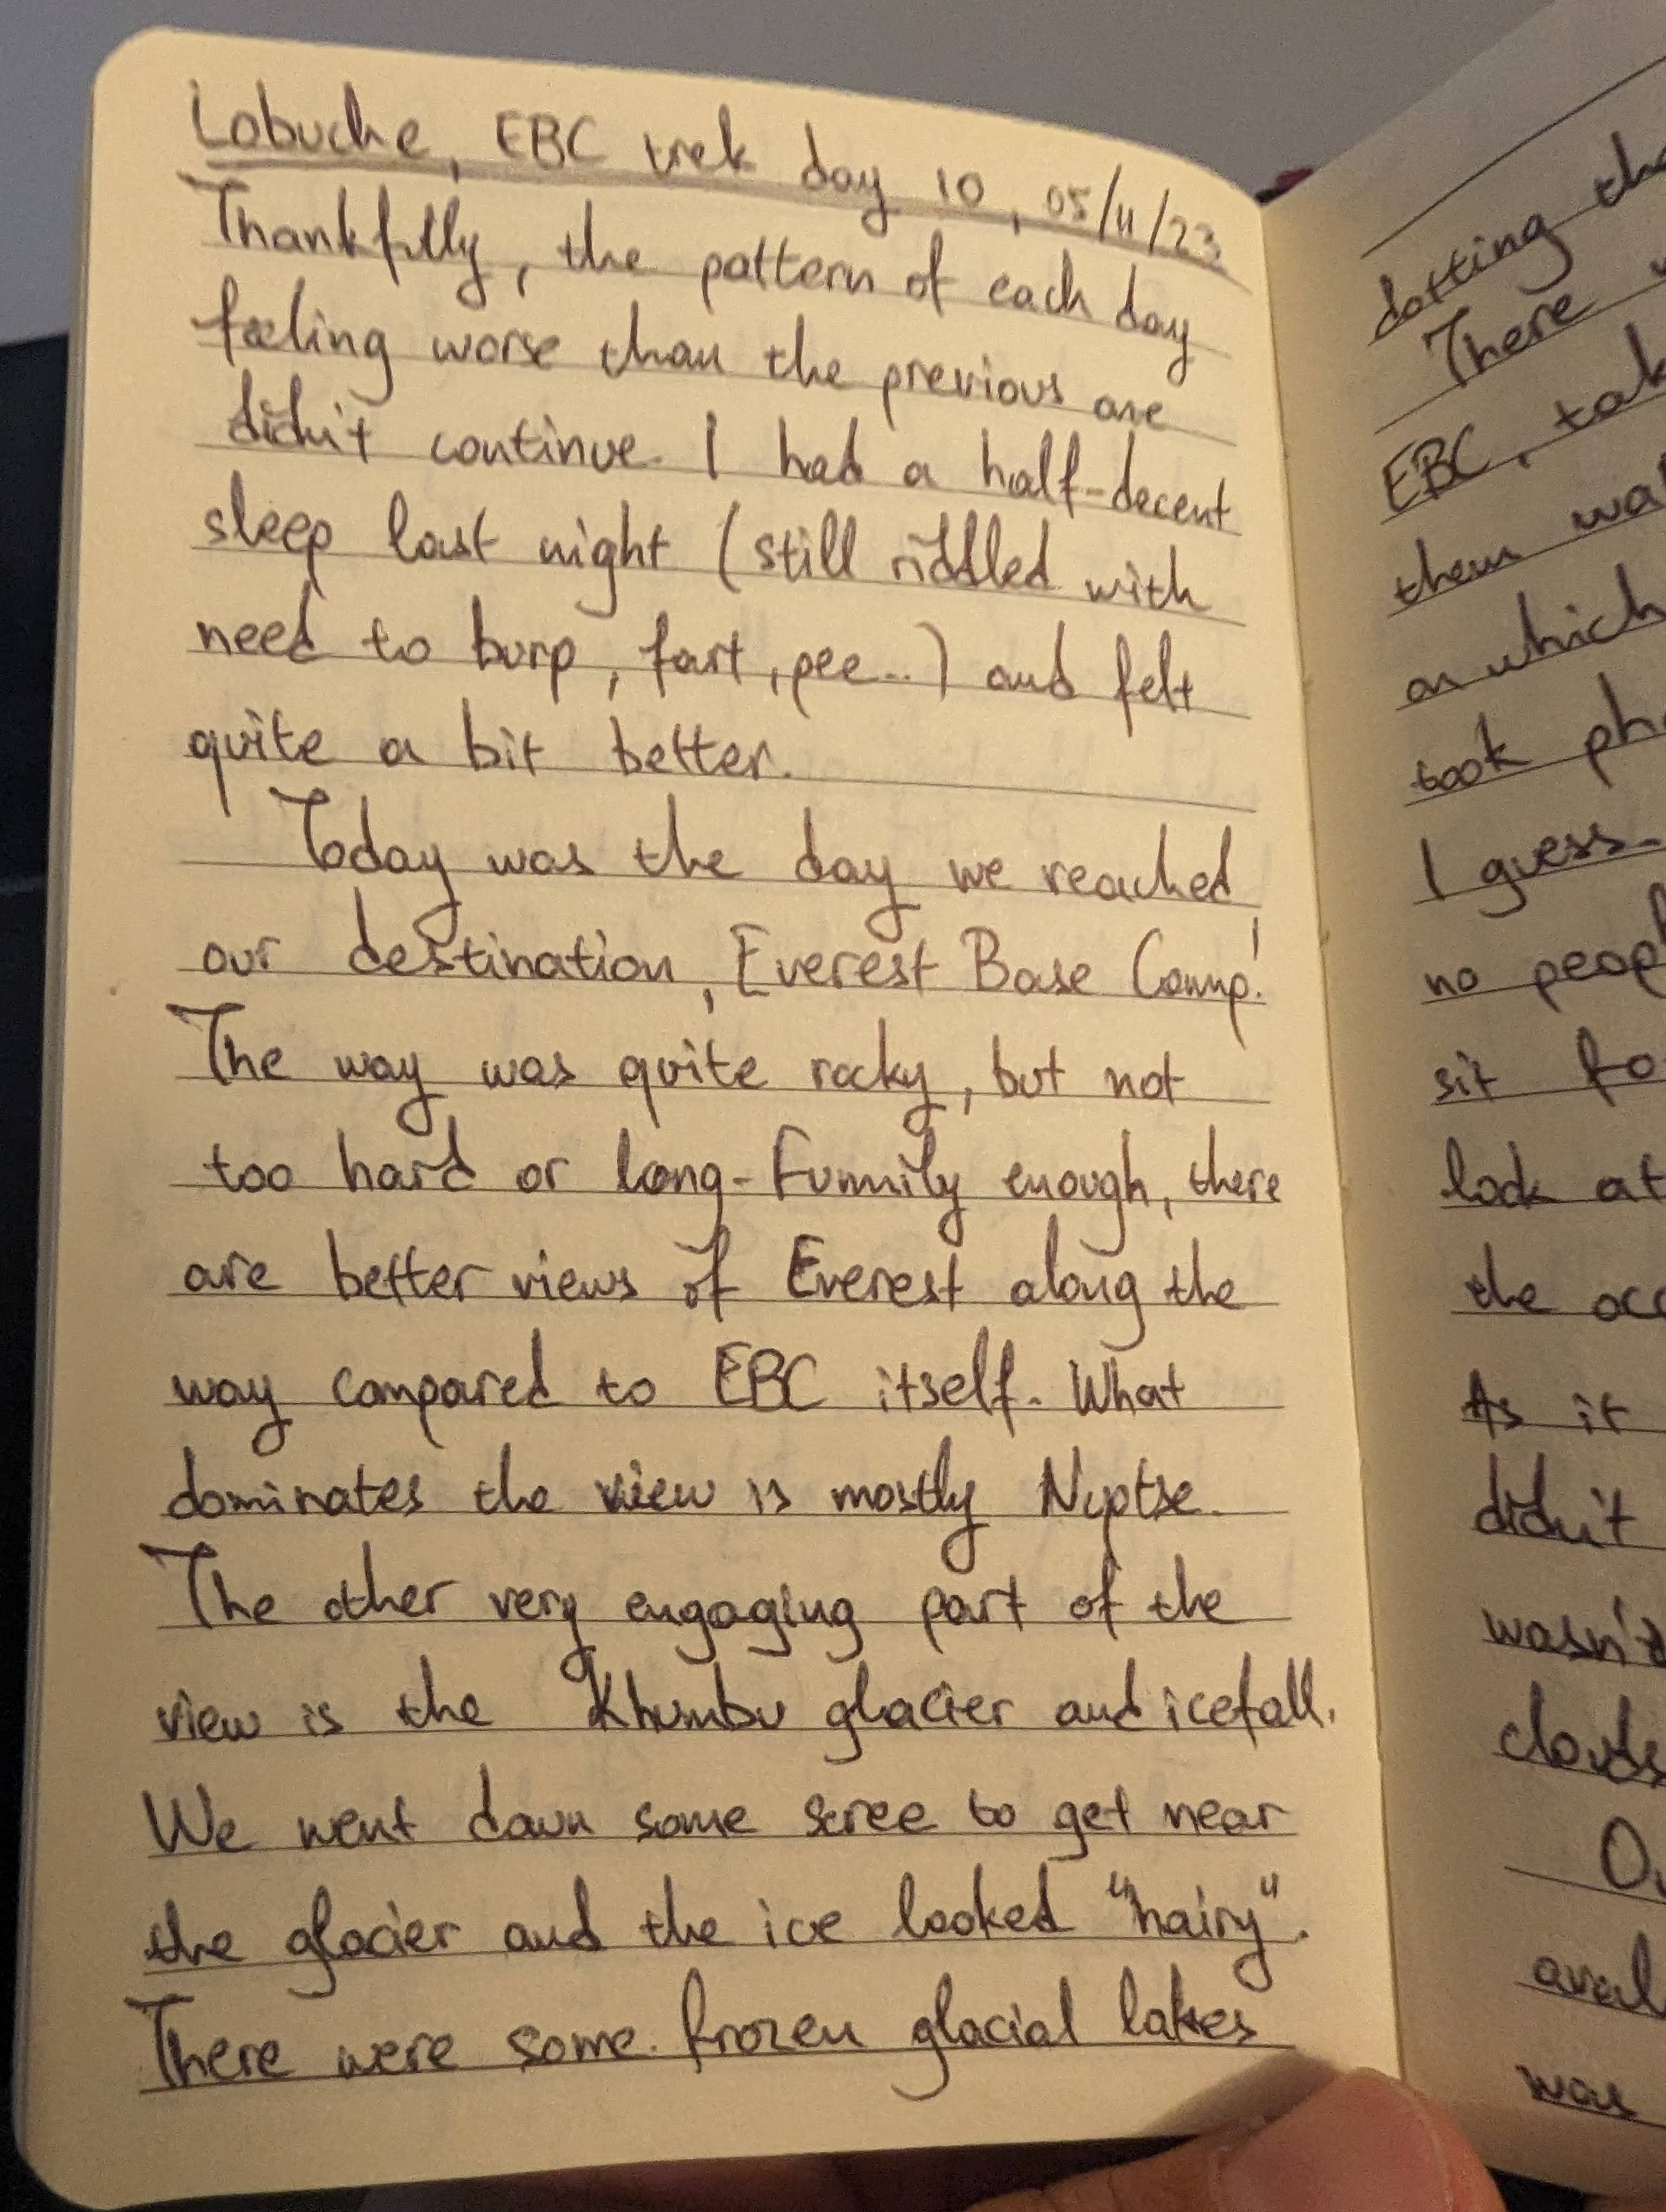 Lobuche, EBC trek day 10, 05/11/23
Thankfully, the pattern of each day
feeling worse than the previous one
didn't continue. I had a half-decent
sleep last night (still riddled with
need to burp, fart, pee...) and felt
quite a bit better.
Today was the day we reached
our destination, Everest Base Camp!
The way was quite rocky, but not
too hard or long. Funnily enough, there
are better views of Everest along the
way compared to EBC itself. What
dominates the view is mostly Nuptse.
The other very engaging part of the
view is the Khumbu glacier and icefall.
We went down some scree to get near
the glacier and the ice looked "hairy".
There were some frozen glacial lakes
dotting the
There
EBC,
them
on which
took
I guess.
no
sit
look at
the
As it
didn't
wasn't
clouds
was